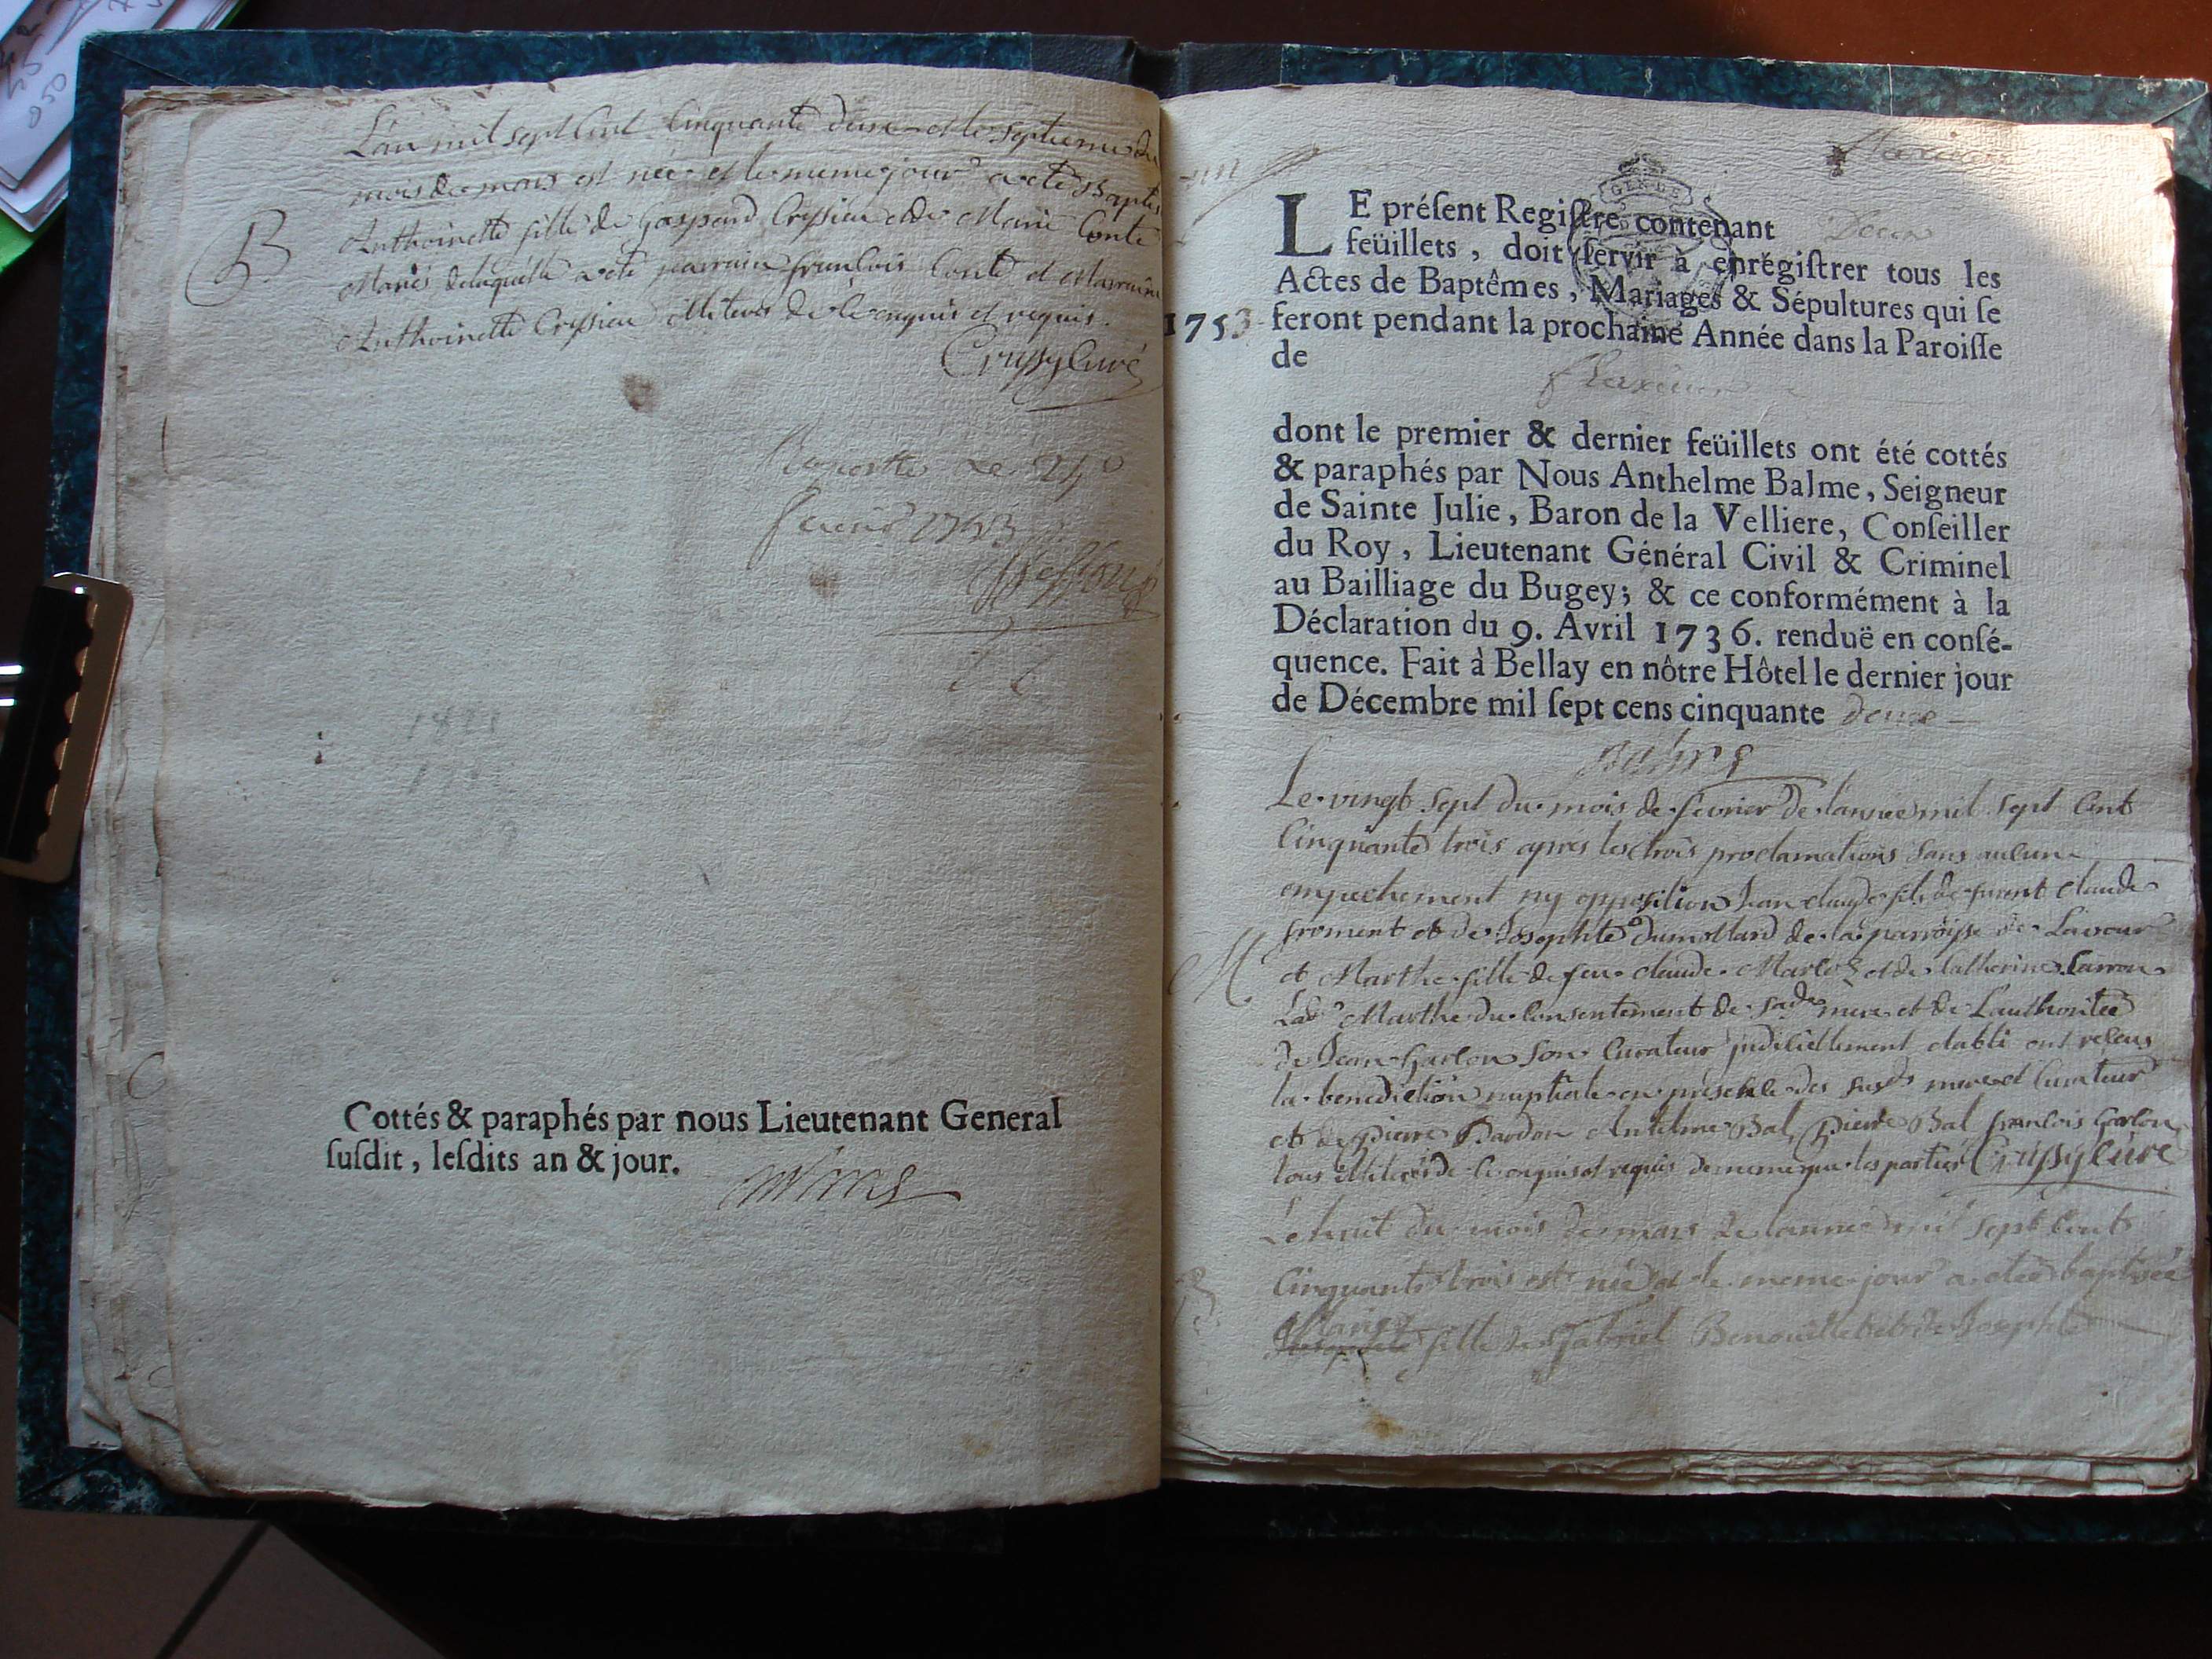 L'an mil sept cent cinquante deux et le septieme du
mois de mars est née et le meme jour a eté Baptisé
B
Anthoinette fille de Gaspard Cressieu et de Marie Conte
Mariés de laquelle a eté parrain françois Conte et Marraine
Anthoinette Cressieu illiteres de ce enquis et requis.
Crussy Curé
Raporté Le 24
1753
Cottés & paraphés par nous Lieutenant General
ſuſdit, leſdits an & jour.
LE préſent Regiſtre contenant Deux
feüillets, doit ſervir à enrégiſtrer tous les
Actes de Baptêmes, Mariages & Sépultures qui ſe
1753 feront pendant la prochaine Année dans la Paroiſſe
de
flaxieu
dont le premier & dernier feüillets ont été cottés
& paraphés par Nous Anthelme Balme, Seigneur
de Sainte Julie, Baron de la Velliere, Conſeiller
du Roy, Lieutenant Général Civil & Criminel
au Bailliage du Bugey; & ce conformément à la
Déclaration du 9. Avril 1736. renduë en conſé-
quence. Fait à Bellay en nôtre Hôtel le dernier jour
de Décembre mil ſept cens cinquante deux
Balme
Le vingt sept du mois de fevrier de l'année mil sept cent
cinquante trois apres les trois proclamations sans aucun
empechement ny opposition Jean claude fils de furent claude
froment et de Josephte dumollard de la parroisse de Lavour
M
et Marthe fille de feu claude et de Catherine Carron
Lade Marthe du consentement de sade mere et de L'authoritée
de Jean Garlon son Curateur judiciellement etabli ont reçeus
la benediction nuptiale en presence des susds mere et Curateur
et de pierre Dardon Antelme Bal, pierre Bal françois Garlon
tous illiteres de ce enquis et requis de meme que les parties Crussy Curé
Le huit du mois de mars de l'année mil sept cent
cinquante trois est née et le meme jour a eteé baptisée
B
Marie
Josephte fille de Gabriel et de Josephte